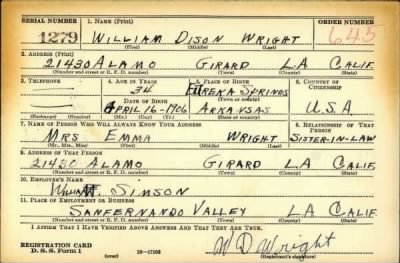 SERIAL NUMBER 1. NAME (Print) ORDER NUMBER
1279 WILLIAM DISON WRIGHT 645
(First) (Middle) (Last)
2. ADDRESS (Print)
21430 ALAMO GIRARD L A CALIF.
(Number and street or R. F. D. number) (Town) (County) (State)
3. TELEPHONE 4. AGE IN YEARS 5. PLACE OF BIRTH 6. COUNTRY OF CITIZENSHIP
34 EUREKA SPRINGS
DATE OF BIRTH (Town or county)
APRIL 16-1906 ARKANSAS U.S.A
(Exchange) (Number) (Mo.) (Day) (Yr.) (State or country)
7. NAME OF PERSON WHO WILL ALWAYS KNOW YOUR ADDRESS 8. RELATIONSHIP OF THAT PERSON
MRS. EMMA WRIGHT SISTER-IN-LAW
(Mr., Mrs., Miss) (First) (Middle) (Last)
9. ADDRESS OF THAT PERSON
21430 ALAMO GIRARD LA CALIF
(Number and street or R. F. D. number) (Town) (County) (State)
10. EMPLOYER'S NAME
SIMSON
11. PLACE OF EMPLOYMENT OR BUSINESS
SANFERNANDO VALLEY LA CALIF
(Number and street or R. F. D. number) (Town) (County) (State)
I AFFIRM THAT I HAVE VERIFIED ABOVE ANSWERS AND THAT THEY ARE TRUE.
REGISTRATION CARD
D. S. S. Form 1 (over) W D Wright
(Registrant's signature)